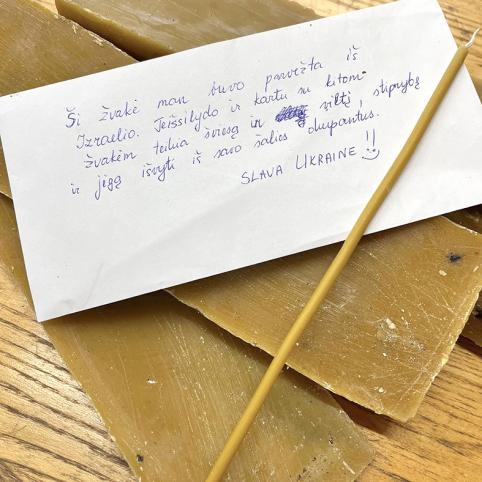 Ši žvakė man buvo parvežta iš
Izraelio. Teišsilydo ir kartu su kitom
žvakėm teikia šviesą ir viltį, stiprybę
ir jėgą išvyti iš savo šalies okupantus.
SLAVA UKRAINE !! :)